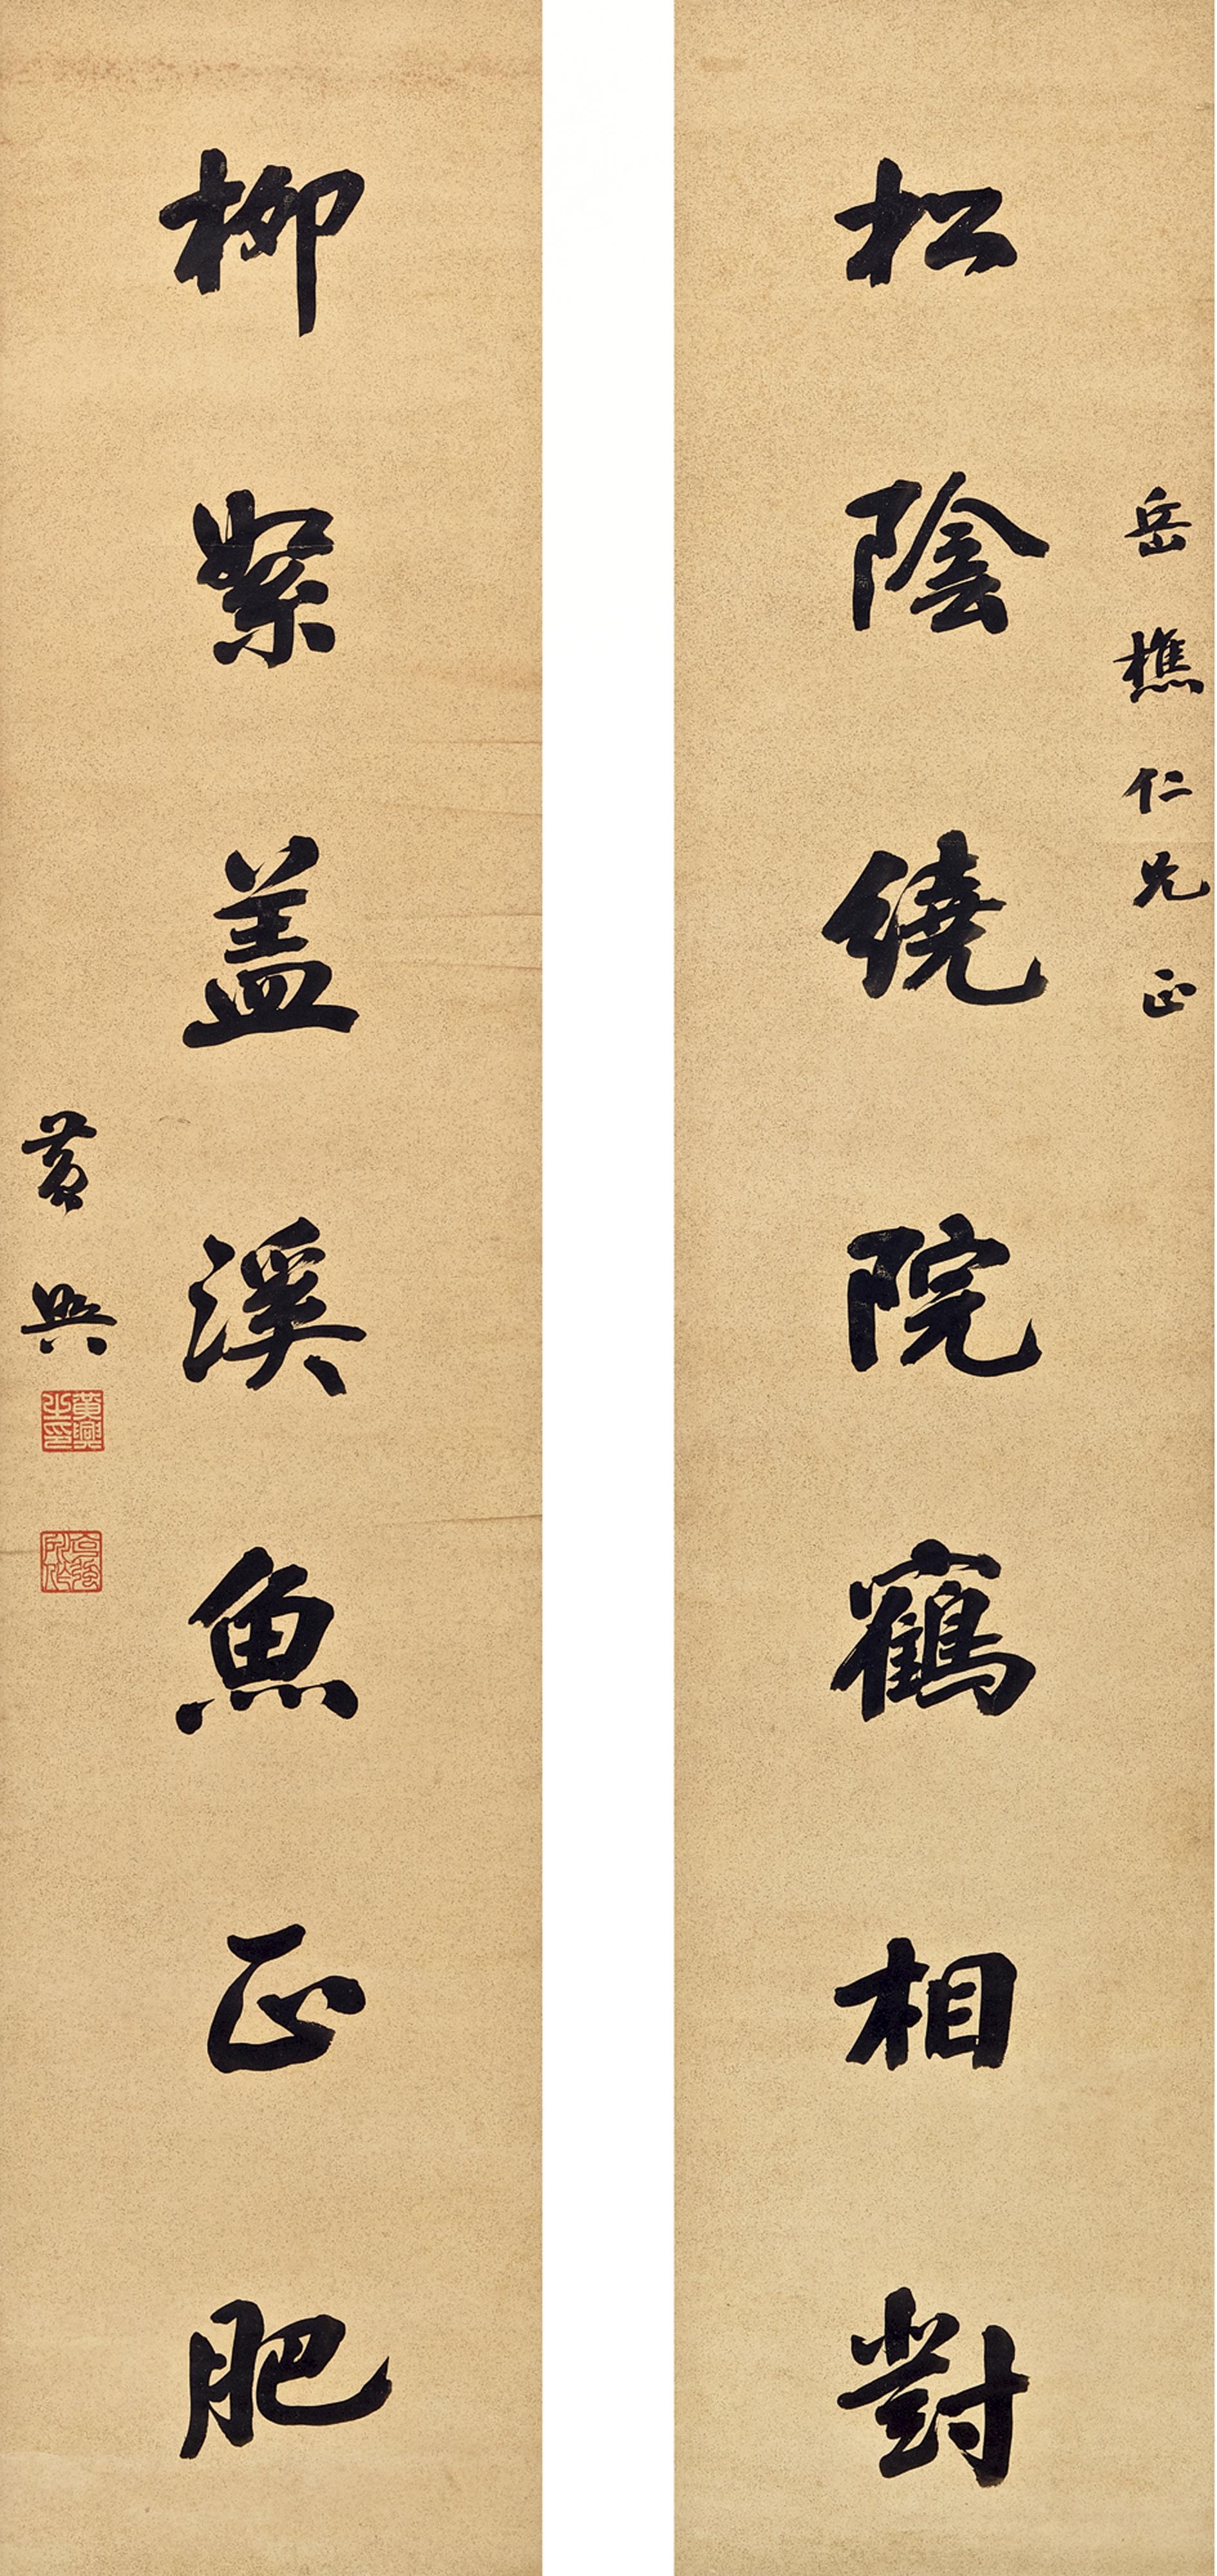 岳樵仁兄正
松陰繞院鶴相對
柳絮蓋溪魚正肥
黃興
黃興之印